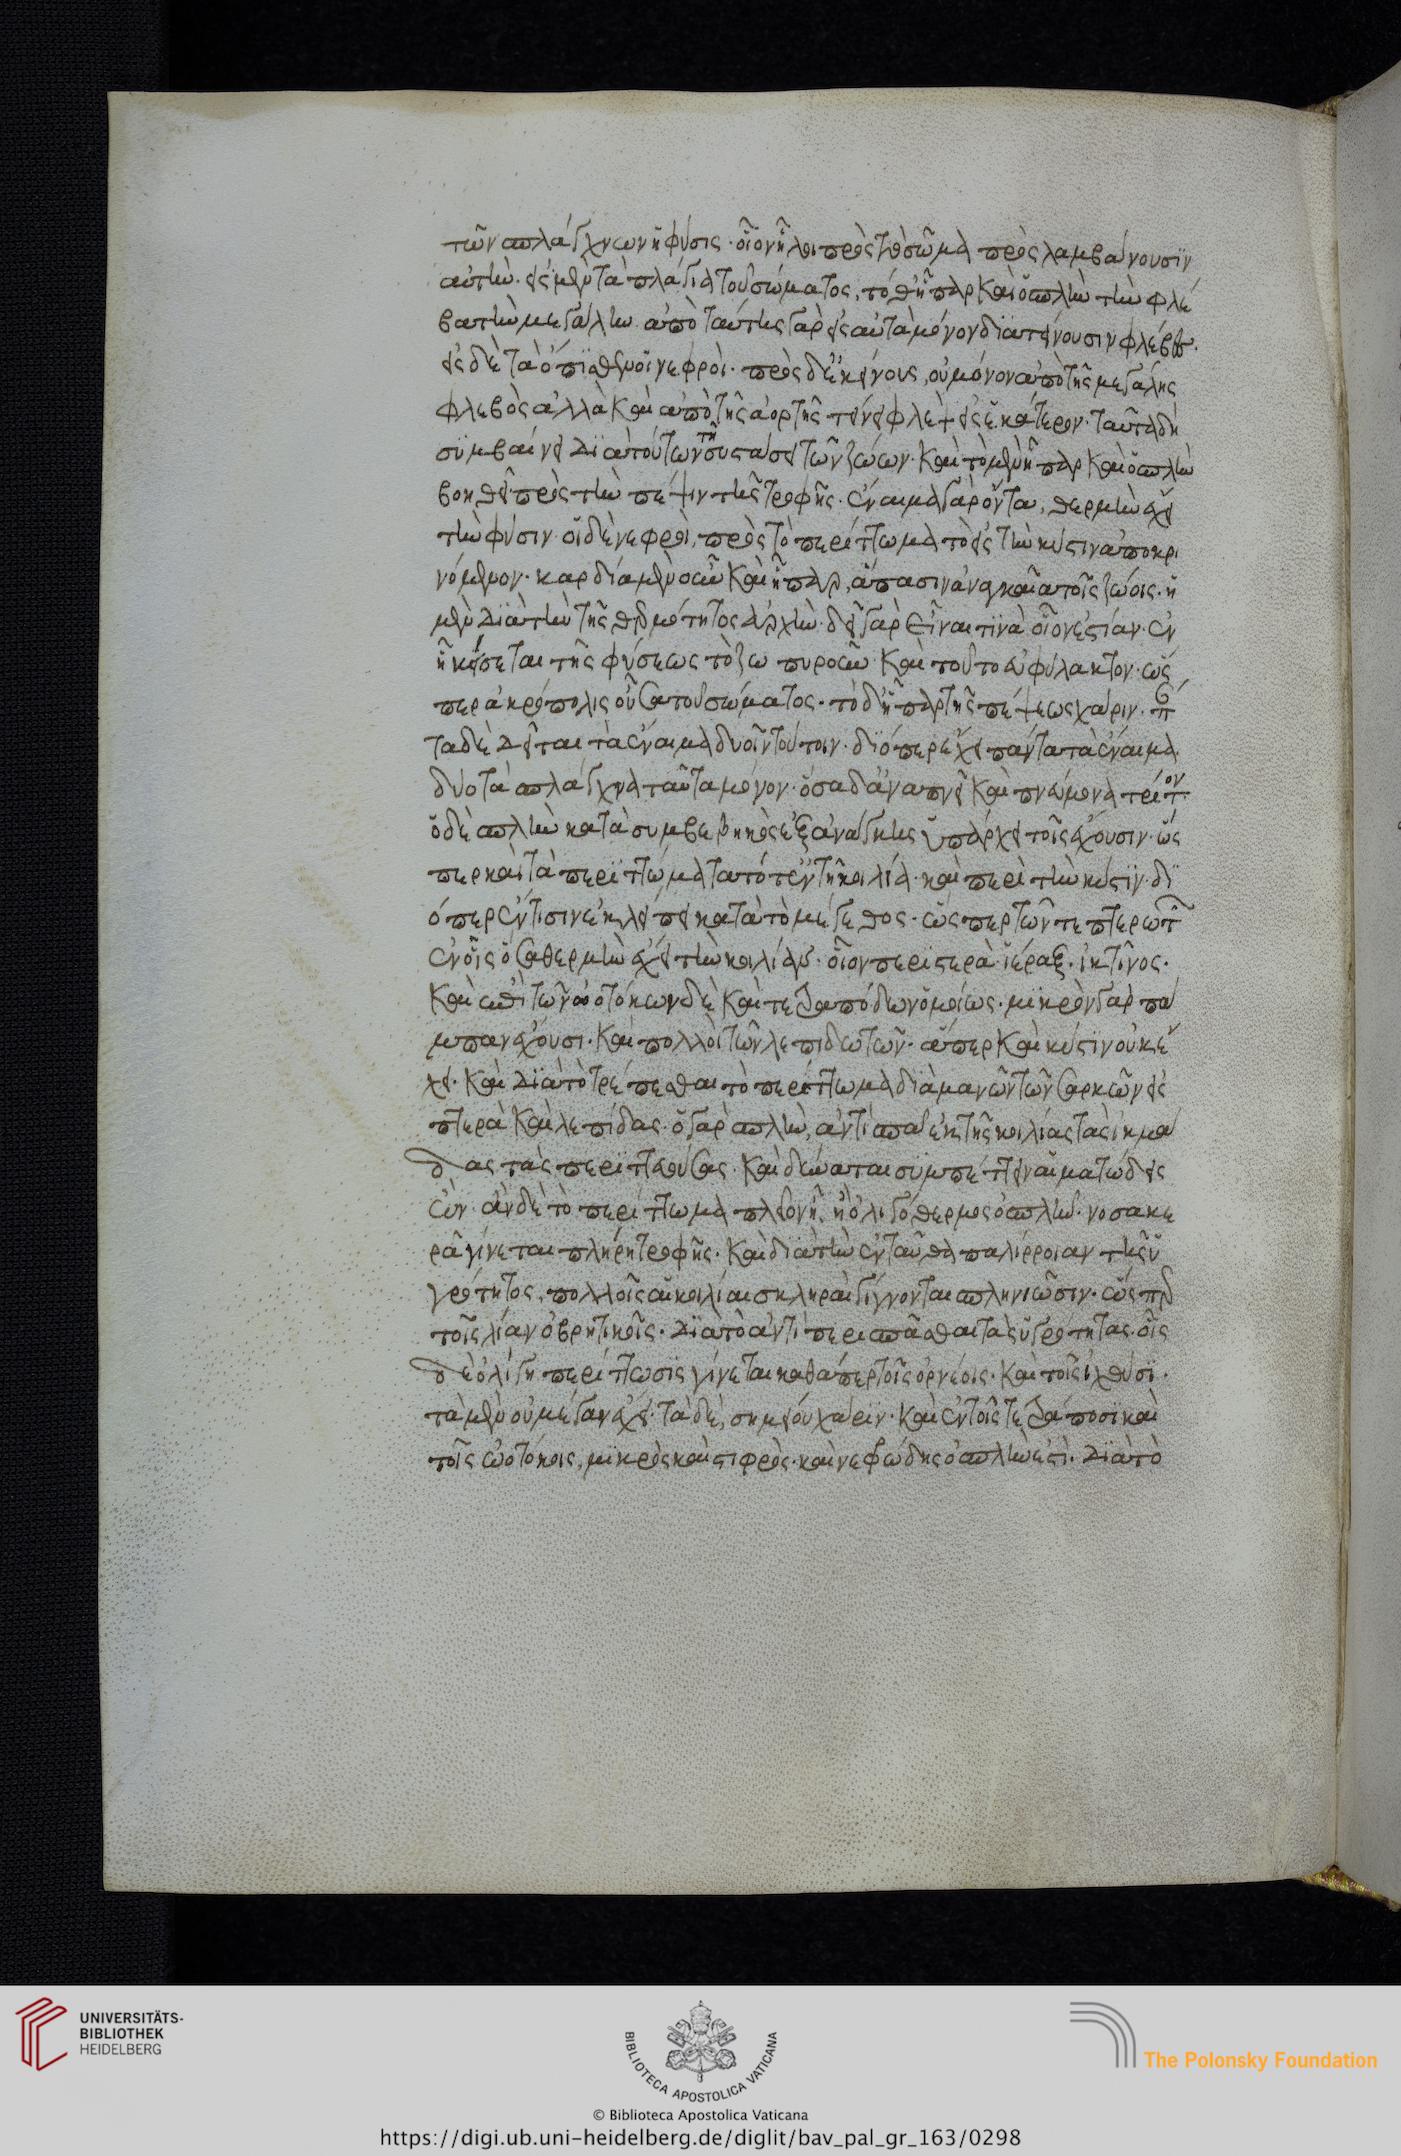 τῶν σπλάγχνων ἡ φύσις· οἷον ἧλοι πρὸς τὸ σῶμα προσλαμβάνουσϊν
αὐτὴν· εἰς μὲν τὰ πλάγια τοῦ σώματος, τό θ' ἧπαρ καὶ ὁ σπλὴν τὴν φλέ
βα τὴν μεγάλην· ἀπὸ ταύτης γὰρ εἰς αὐτὰ μόνον διατείνουσιν φλέβες·
εἰς δὲ τὰ ὄπϊσθεν οἱ νεφροὶ· πρὸς δ' ἐκείνους, οὐ μόνον ἀπὸ τῆς μεγάλης
φλεβὸς ἀλλὰ καὶ ἀπὸ τῆς ἀορτῆς τείνει φλὲψ εἰς ἑκάτερον· ταῦτα δὴ
συμβαίνει διὰ τούτων τῆ συστάσει τῶν ζώων· καὶ τὸ μὲν ἧπαρ καὶ ὁ σπλὴν
βοηθεῖ πρὸς τὴν πέψιν τῆς τροφῆς· ἔναιμα γὰρ ὄντα, θερμὴν ἔχει
τὴν φύσιν· οἱ δὲ νεφροὶ, πρὸς τὸ περίττωμα τὸ εἰς τὴν κύστιν ἀποκρι
νόμενον· καρδία μὲν οὖν καὶ ἧπαρ, ἅπασιν ἀναγκαῖα τοῖς ζώοις· ἡ
μὲν διὰ τὴν τῆς θερμότητος ἀρχὴν· δεῖ γὰρ εἶναι τϊνὰ οἷον ἑστίαν· ἐν
ἧ κείσεται τῆς φύσεως τὸ ζωπυροῦν· καὶ τοῦτο εὐφύλακτον· ὥσ
περ ἀκρόπολις οὖσα τοῦ σώματος· τὸ δ' ἧπαρ τῆς πέψεως χάριν· πάν
τα δὲ δεῖται τὰ ἔναιμα δυοῖν τούτοιν· διόπερ ἔχει πάντα τὰ ἔναιμα
δύο τὰ σπλάγχνα ταῦτα μόνον· ὅσα δ' ἀναπνεῖ καὶ πνεύμονα τρίτον·
ὁ δὲ σπλὴν κατὰ συμβεβηκὸς ἐξ ἀνάγκης ὑπάρχει τοῖς ἔχουσιν· ὥσ
περ καὶ τὰ περϊττώματα τό τ' ἐν τῆ κοιλία· καὶ περὶ τὴν κύστϊν· δϊ
όπερ ἔν τισιν ἐκλείπει κατὰ τὸ μέγεθος· ὥσπερ τῶν τε πτερωτῶν
ἐν οἷς ὅσα θερμὴν ἔχει τὴν κοιλίαν· οἷον περϊστερὰ· ἱέραξ· ἰκτῖνος·
καὶ ἐπὶ τῶν ὠοτόκων δὲ καὶ τετραπόδων ὁμοίως· μϊκρὸν γὰρ πά
μπαν ἔχουσι· καὶ πολλοὶ τῶν λεπιδωτῶν· ἅπερ καὶ κύστϊν οὐκ ἔ
χει· καὶ διὰ τὸ τρέπεσθαι τὸ περίττωμα διὰ μανῶν τῶν σαρκῶν εἰς
πτερὰ καὶ λεπίδας· ὁ γὰρ σπλὴν, ἀντισπᾶ ἐκ τῆς κοιλίας τὰς ἰκμά
δας τὰς περϊττευούσας· καὶ δύναται συμπέττειν αἱματώδεις
οὖν· ἂν δὲ τὸ περίττωμα πλεῖον ἦ, ἢ ὀλιγόθερμος ὁ σπλὴν· νοσακε
ρὰ γίνεται πλήρη τροφῆς· καὶ διὰ τὴν ἐνταῦθα παλίρροιαν τῆς ὑ
γρότητος, πολλοῖς αἱ κοιλίαι σκληραὶ γίγνονται σπληνιῶσιν· ὥσπερ
τοῖς λίαν οὐρητικοῖς· διὰ τὸ ἀντιπερισπᾶσθαι τὰς ὑγρότητας· οἷς
δὲ ὀλίγη περίττωσϊς γίνεται καθάπερ τοῖς ὀρνέοις· καὶ τοῖς ἰχθύσϊ·
τὰ μὲν οὐ μέγαν ἔχει· τὰ δὲ, σημείου χάρϊν· καὶ ἐν τοῖς τετράποσι καὶ
τοῖς ὠοτόκοις, μϊκρὸς καὶ στιφρὸς· καὶ νεφρώδης ὁ σπλὴν ἐστὶ· διὰ τὸ
UNIVERSITÄTS-
BIBLIOTHEK
HEIDELBERG
BIBLIOTECA APOSTOLICA VATICANA
The Polonsky Foundation
© Biblioteca Apostolica Vaticana
https://digi.ub.uni-heidelberg.de/diglit/bav_pal_gr_163/0298